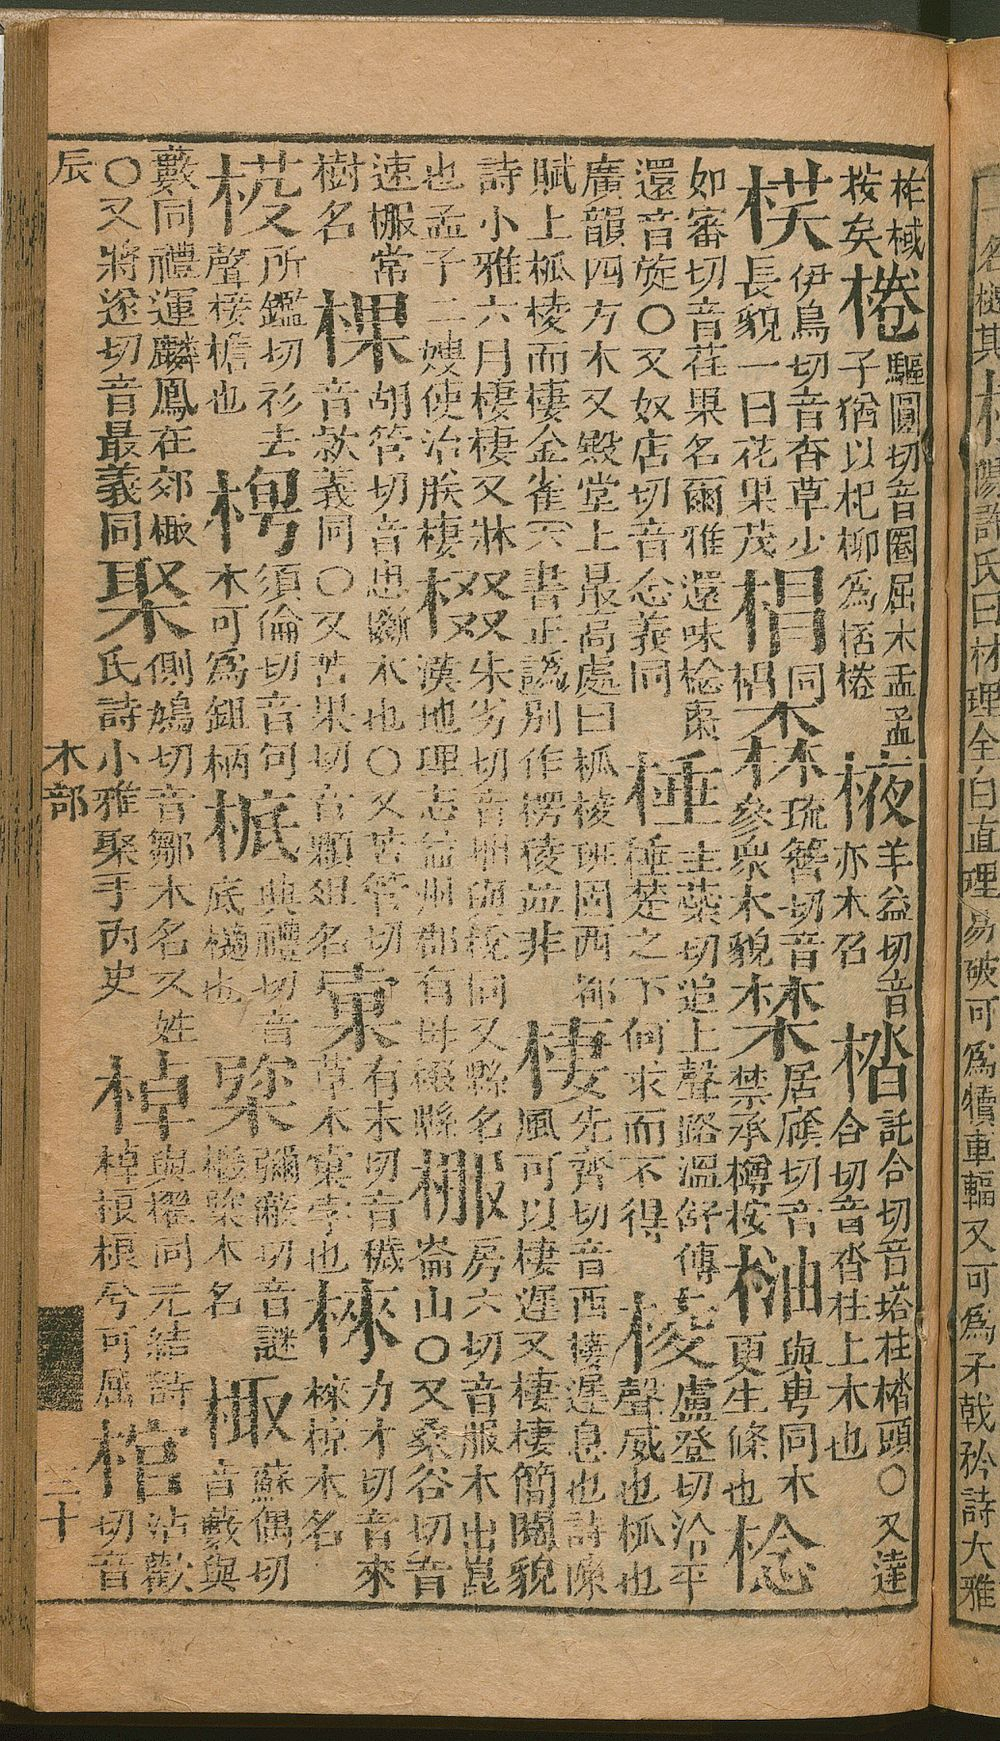 理全白直理易破可為犢車輻又可為矛戟矜詩大雅
柞棫
按矣
棬
驅圓切音圈屈木盂孟
子猶以杞柳為桮棬
棭
羊益切音
亦木名
㭼
託合切音塔柱㭼頭○又達
合切音沓柱上木也
伊鳥切音杳草少
長貌一曰花果茂
椙
同
琉簪切音
參衆木貌
禁承樽按
同木
更生條也
棯
如審切音荏果名爾雅還味棯棗
還音旋○又奴店切音念義同
棰
主蘂切追上聲路溫舒傳
棰楚之下何求而不得
棱
盧登切冷平
聲威也柧也
廣韻四方木又殿堂上最高處曰柧棱班固西都
賦上柧棱而棲金雀六書正譌別作楞稜並非
棲
先齊切音西棲遲息也詩陳
風可以棲遲又棲棲簡閱貌
詩小雅六月棲棲又牀
也孟子二嫂使治朕棲
棳
朱劣切音拙與梲同又縣名
漢地理志益州郡有毋棳縣
棴
房六切音服木出崑
崙山○又桑谷切音
速棴常
樹名
棵
胡管切音患斷木也○又苦管切
音款義同○又苦果切音顆俎名
有未切音穢
草木
孛也
棶
力才切音來
棶椋木名
所鑑切衫去
聲椄檐也
須倫切音旬
木可爲鉏柄
典禮切音
底樋也
彌敝切音謎
木名
棷
蘇偶切
音藪與
藪同禮運麟鳳在郊棷
○又將遂切音最義同
棸
側鳩切音鄒木名又姓
氏詩小雅聚子內史
棹
與櫂同元結詩
棹根根兮可屈
棺
沽歡
切音
辰
木部
三十